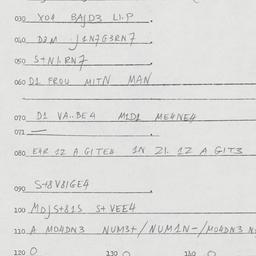 030 YO4 BAJD3 LI.P
040 D2M J1N7G3RN7
050 S+NI.RN7
060 D1 FROU MITN MAN
070 D1 VA..BE4 M1D1 ME4NE4
071
080 E4R 1Z A GITE4 1N Z1. 1Z A GIT3
090 S+8V8IGE4
100 MDJS+81S S+VEE4
110 A MO4DN3 NUM3+/NUM1N-/MO4DN3
120 O 130 O 140 O